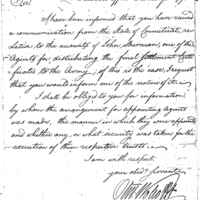 Sir
I have been informed that you have received
a communication from the State of Connecticut, re-
lative to the accounts of John Sherman, one of the
Agents for distributing the final Settlement Certi-
ficates to the Army, if this is the case, I request
that you would inform me of the nature of it.
I shall be obliged to you for information
by whom the arrangement for appointing Agents
was made, the manner in which they were appointed
and whether any, or what security was taken for the
execution of their respective trusts.
I am with respect
your obed. servant